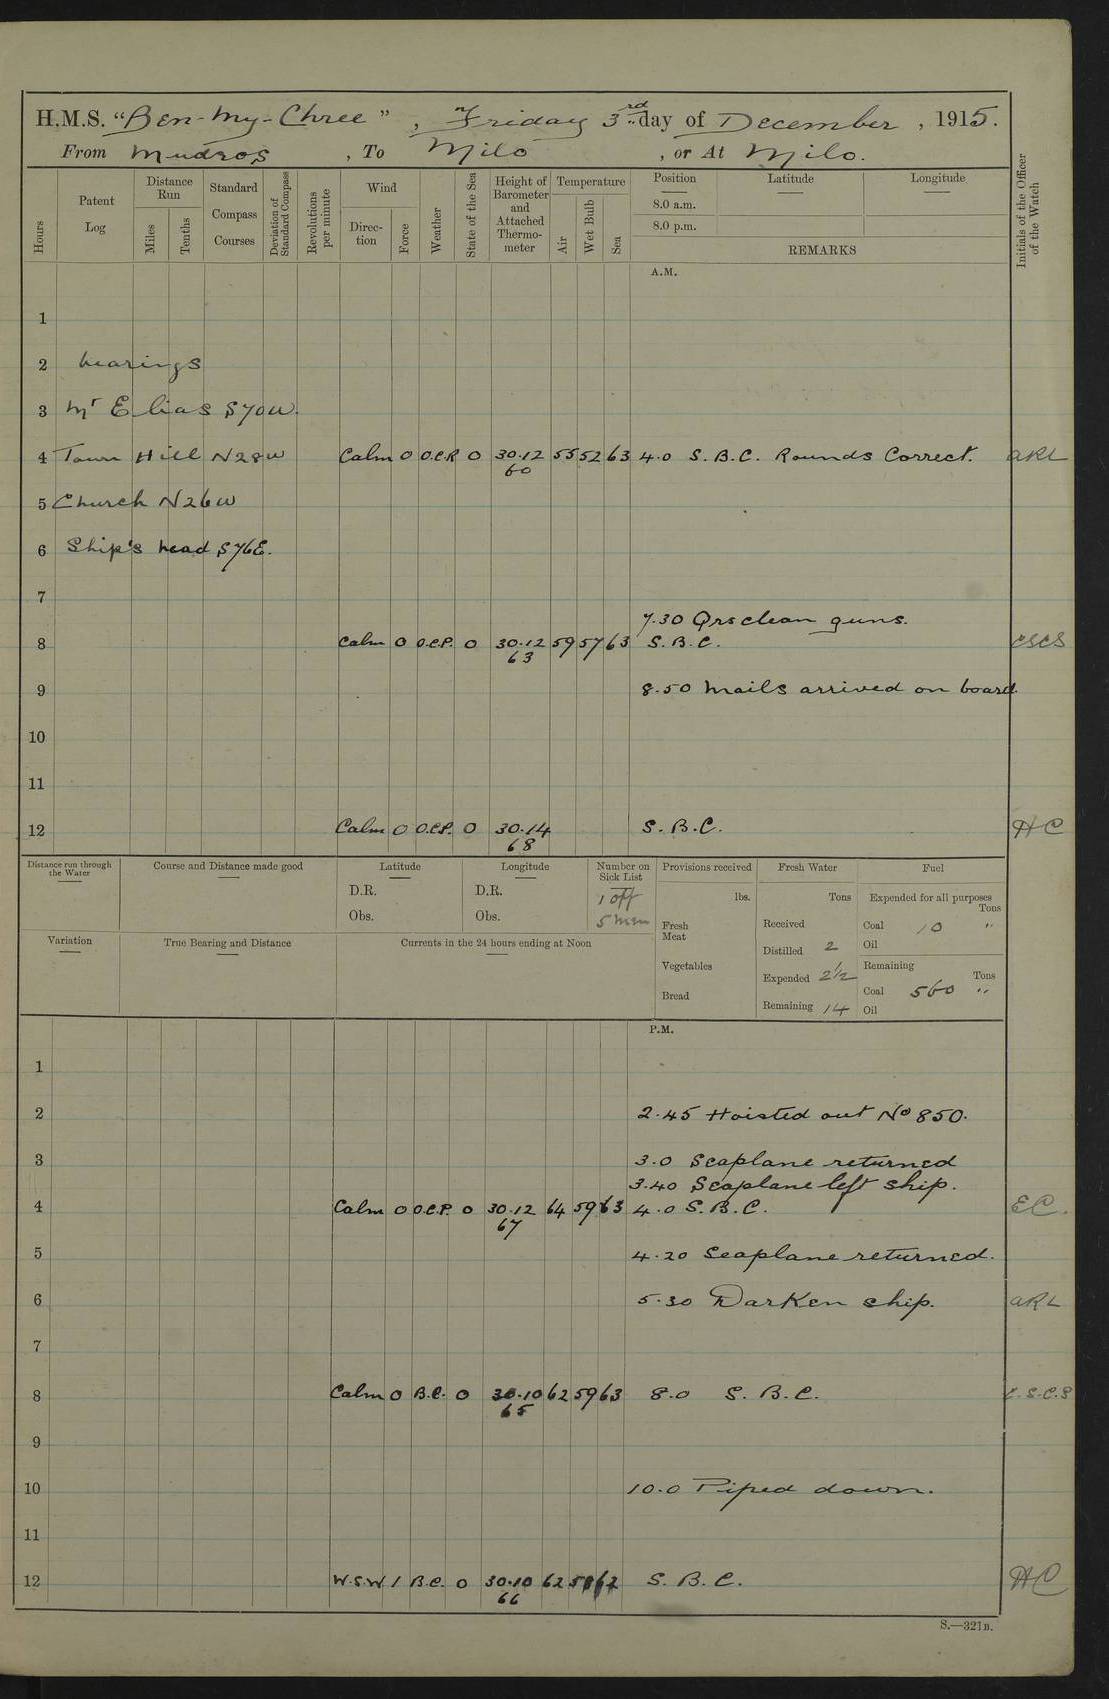 H.M.S. "Ben-my-Chree", Friday 3rd day of December, 1915.
From Mudros, To Milo, or At Milo.
Hours
Patent Log
Distance Run
Miles
Tenths
Standard Compass Courses
Deviation of Standard Compass
Revolutions per minute
Wind
Direction
Force
Weather
State of the Sea
Height of Barometer and Attached Thermometer
Temperature
Air
Wet Bulb
Sea
Position
8.0 a.m.
8.0 p.m.
Latitude
Longitude
REMARKS
Initials of the Officer of the Watch
A.M.
1
2 bearings
3 Mt Elias S70W.
4 Town Hill N28W Calm 0 O.C.P. 0 30.12 55 52 63 4.0 S.B.C. Rounds Correct. ARL
60
5 Church N26W
6 Ship's head S76E.
7
7.30 Qrs clean guns.
8 Calm 0 O.C.P. 0 30.12 59 57 63 S.B.C. CSCS
63
9 8.50 Mails arrived on board.
10
11
12 Calm 0 O.C.P. 0 30.14 S.B.C. HC
68
Distance run through the Water
Course and Distance made good
Latitude
D.R.
Obs.
Longitude
D.R.
Obs.
Number on Sick List
1 off
5 men
Provisions received
lbs.
Fresh Meat
Vegetables
Bread
Fresh Water
Tons
Received
Distilled 2
Expended 2½
Remaining 14
Fuel
Expended for all purposes
Tons
Coal 10 "
Oil
Remaining
Tons
Coal 560 "
Oil
Variation
True Bearing and Distance
Currents in the 24 hours ending at Noon
P.M.
1
2 2.45 Hoisted out No 850.
3 3.0 Seaplane returned
3.40 Seaplane left ship.
4 Calm 0 O.C.P. 0 30.12 64 59 63 4.0 S.B.C. EC.
67
5 4.20 Seaplane returned.
6 5.30 Darken ship. ARL
7
8 Calm 0 B.C. 0 30.10 62 59 63 8.0 S.B.C. C.S.C.S
65
9
10 10.0 Piped down.
11
12 W.S.W 1 B.C. 0 30.10 62 62 S.B.C. HC
66
S.—321B.